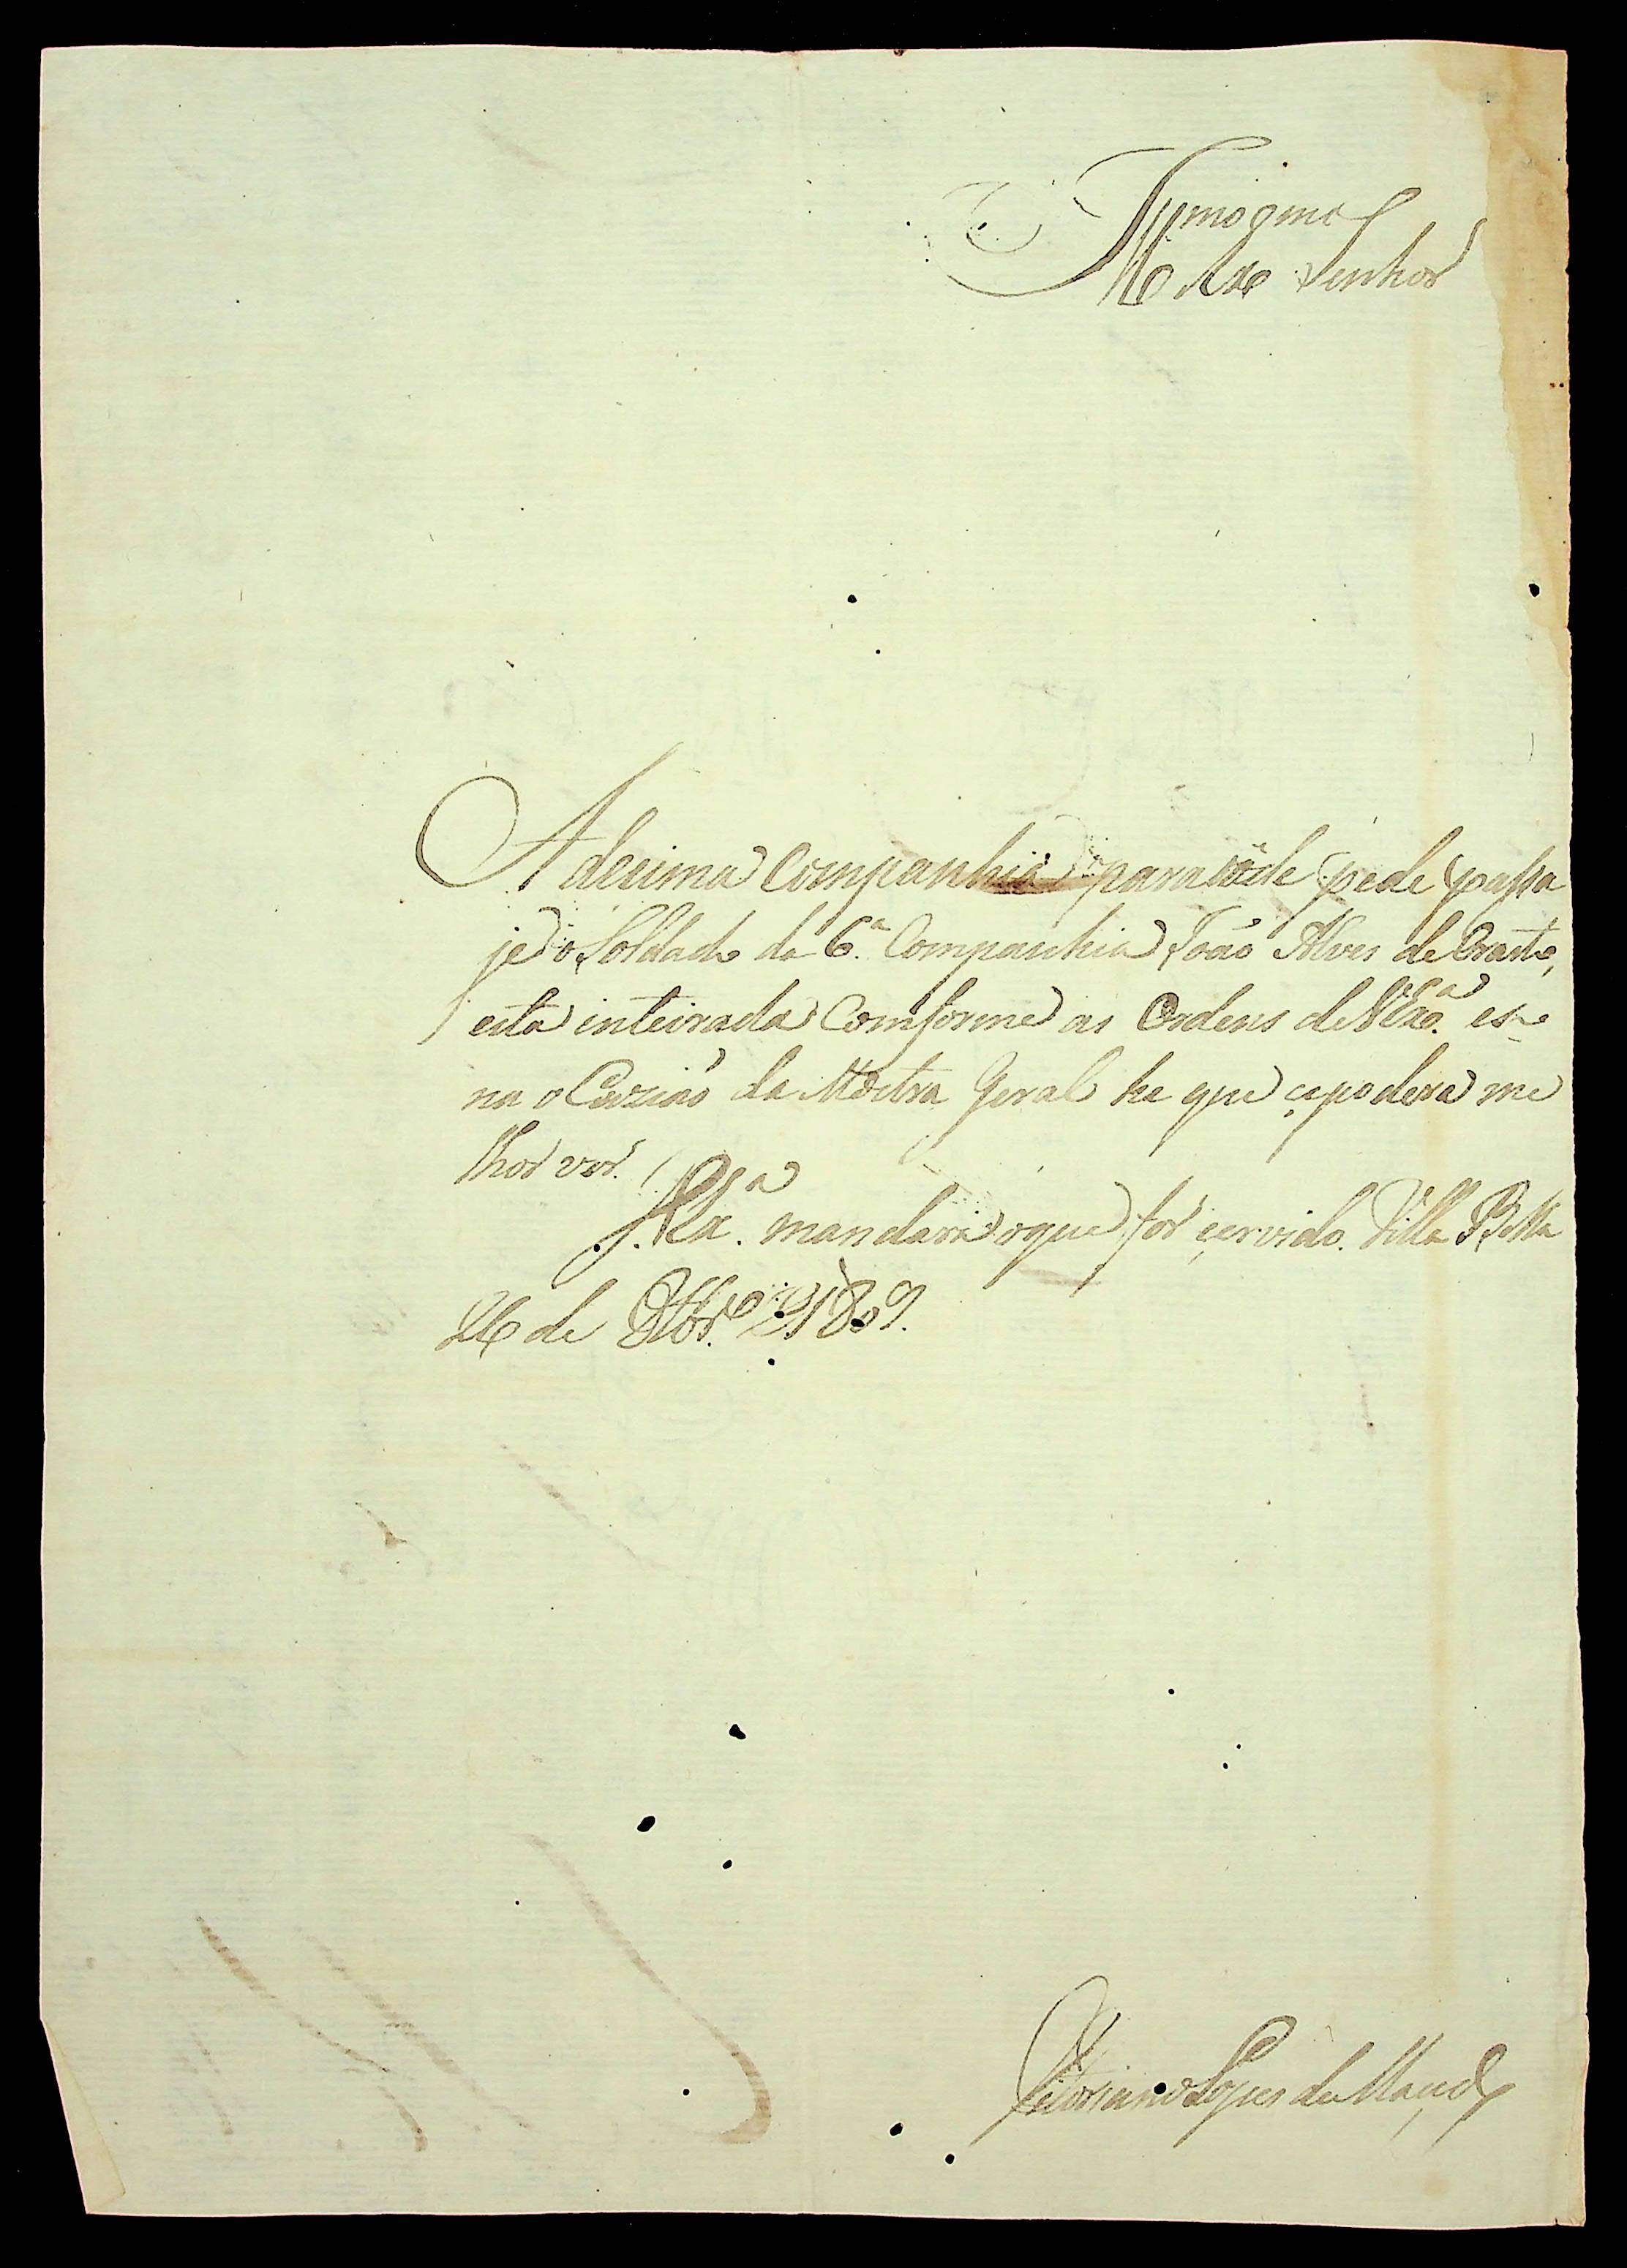 Illmo Exmo Senhor
A decima Companhia para õde pede passa
je o Soldado da 6.ª Companhia João Alves de
esta inteirada Comforme as Ordens de V Exa.
na o Cazião da Mostra Geral he que çe poderá me
lhor ver.
V. Exa. mandara o que for çervido. Villa Bella
26 de Outbr.º 1809.
Vitoriano Lopes de Maced.º